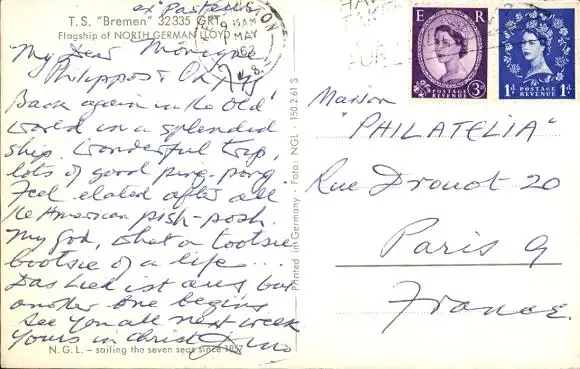 ex Pasteur
T.S. "Bremen" 32335 GRT.
Flagship of NORTH GERMAN LLOYD
My Dear
Philippos &
Back again in the old
world in a splendid
ship. Wonderful trip,
lots of good ping-pong
Feel elated after all
the American pish-posh.
My God, what a tootsie
bootsie of a life...
Das Lied ist aus but
another one begins
See you all next week
Yours in Christ
N.G.L. – sailing the seven seas since 1857
Printed in Germany - Foto: NGL - 150.2.61 S
9 15 AM
MAY
E R
POSTAGE REVENUE
3D
1D POSTAGE REVENUE 1D
Maison
"PHILATELIA"
Rue Drouot 20
Paris 9
France.